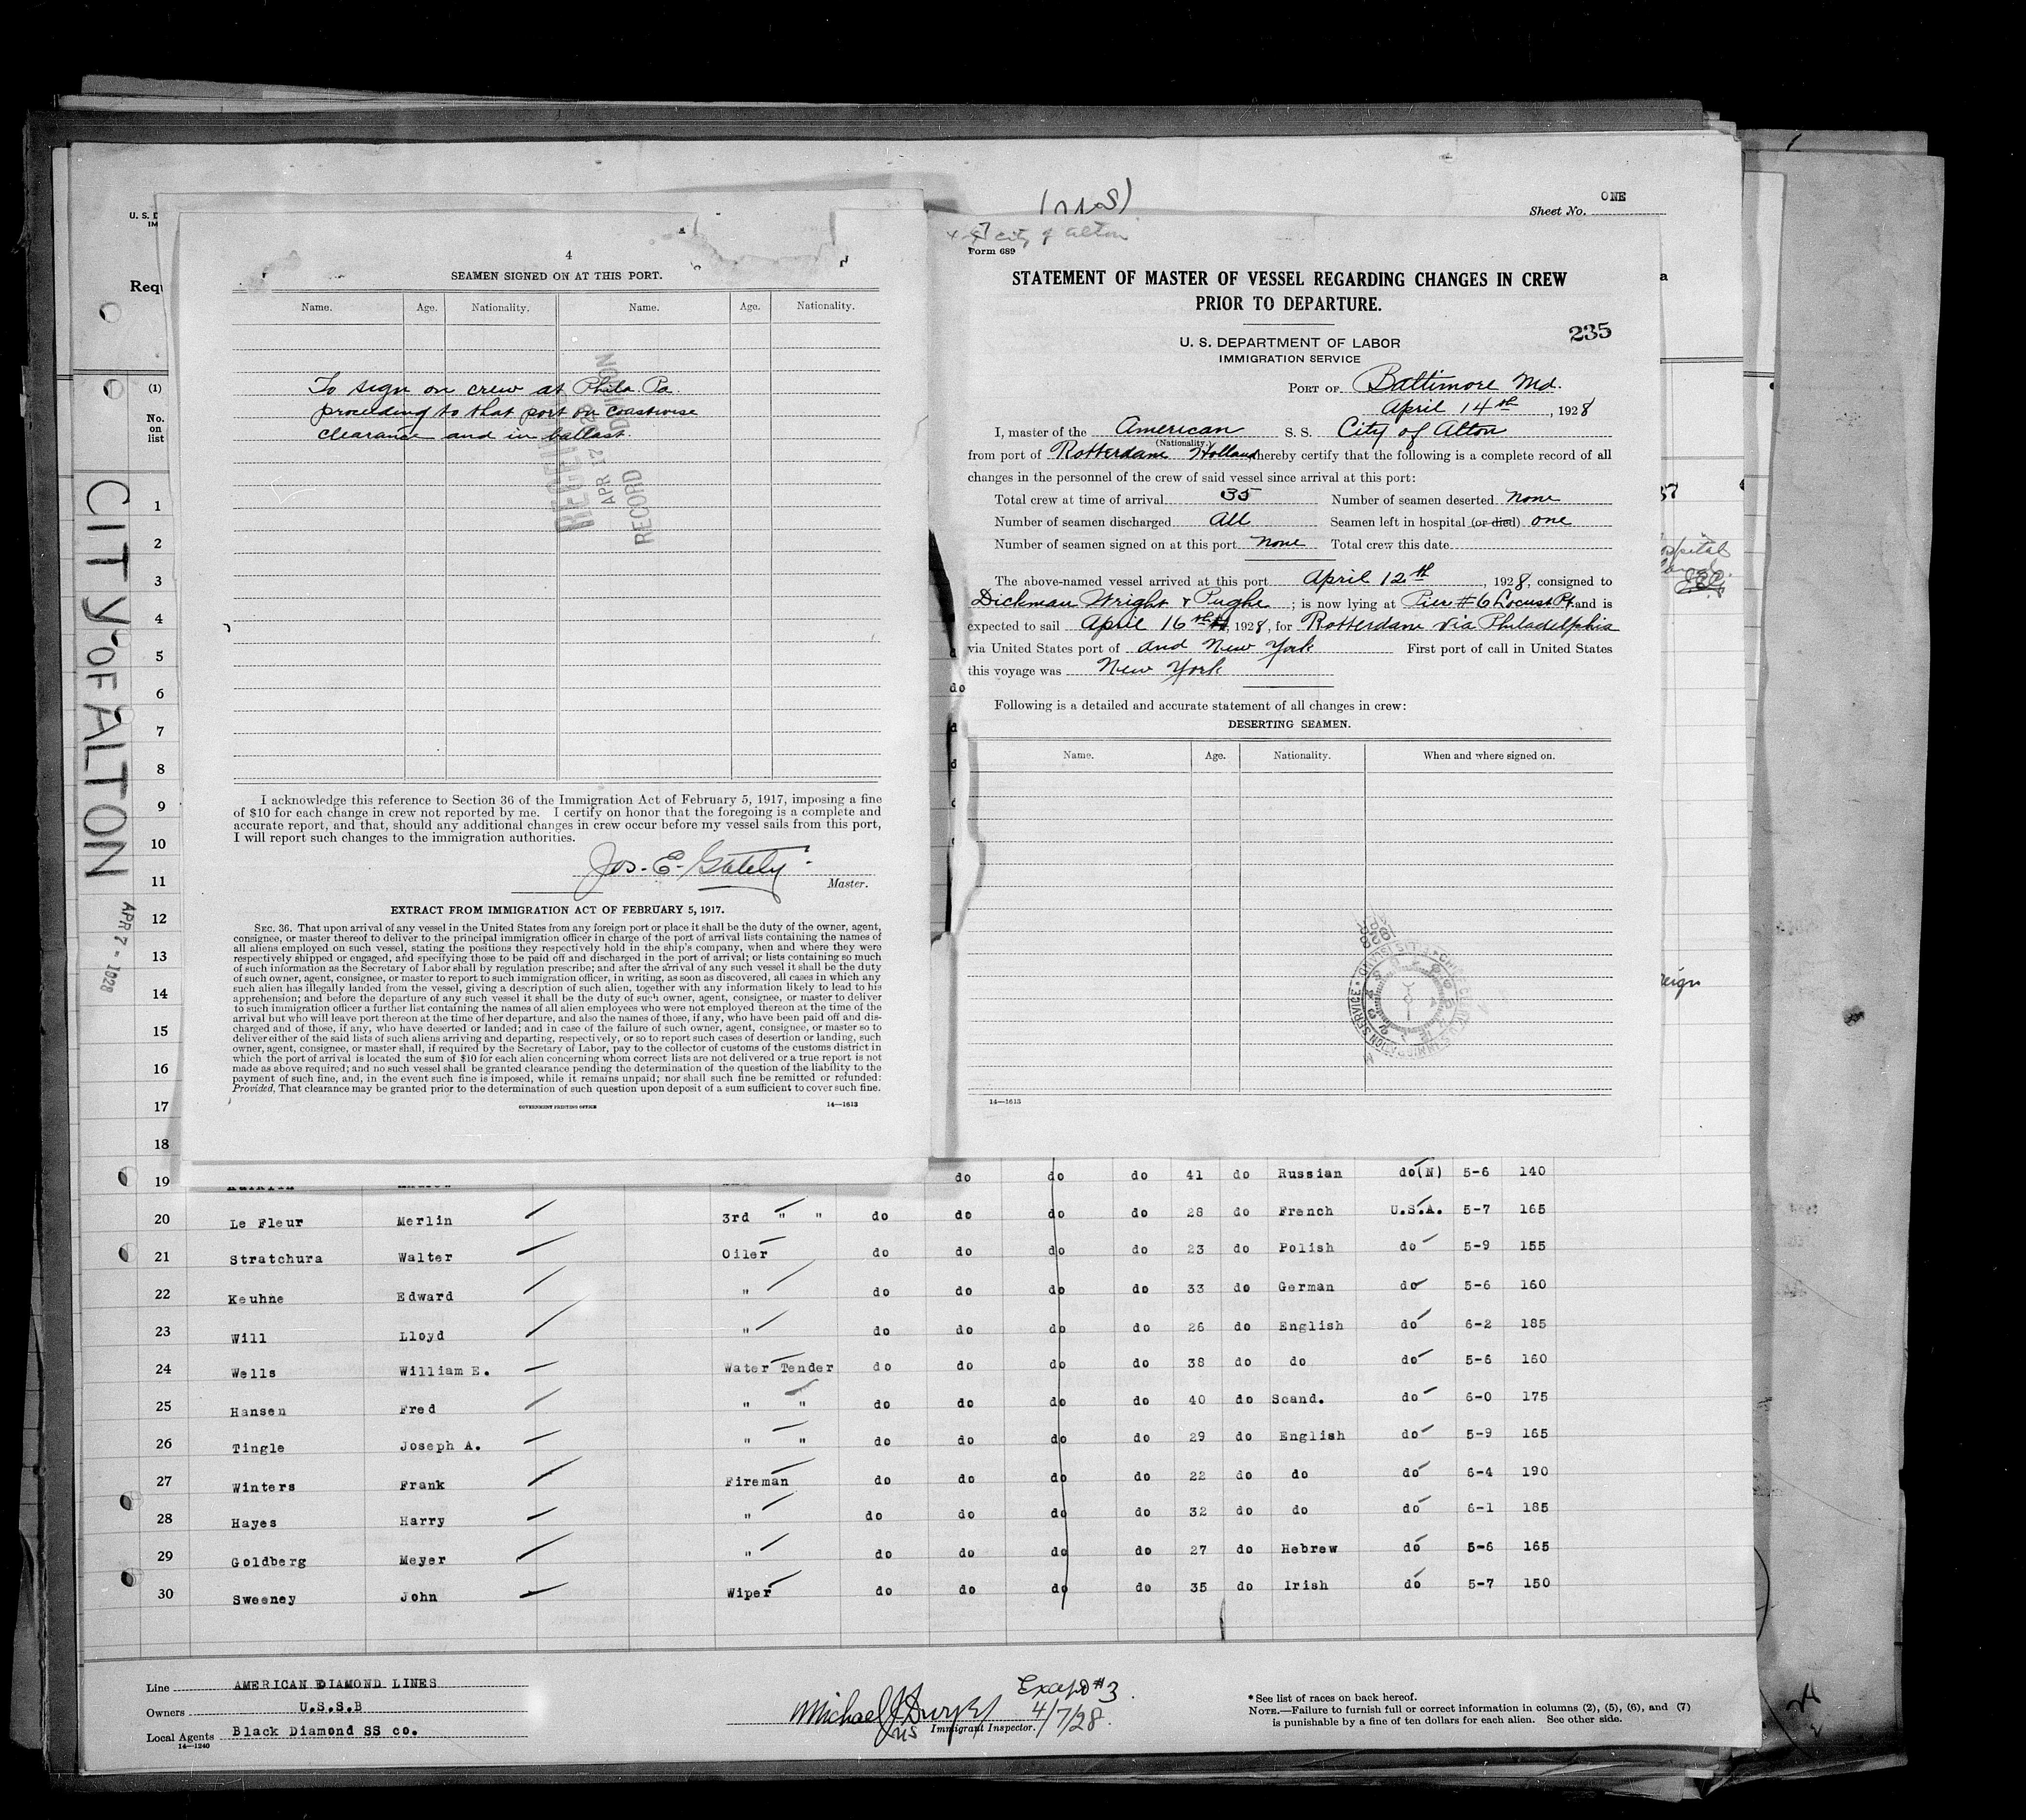 (
ONE
Sheet No.
U. S. D
IM
Requ
(1)
No.
on
list
CITY OF ALTON
APR 7 - 1928
4
SEAMEN SIGNED ON AT THIS PORT.
Name. Age. Nationality. Name. Age. Nationality.
To sign on crew at Phila. Pa.
proceeding to that port on coastwise
clearance and in ballast.
RECEIVED
APR 17 1928
RECORD DIVISION
I acknowledge this reference to Section 36 of the Immigration Act of February 5, 1917, imposing a fine
of $10 for each change in crew not reported by me. I certify on honor that the foregoing is a complete and
accurate report, and that, should any additional changes in crew occur before my vessel sails from this port,
I will report such changes to the immigration authorities.
Jos. E. Gately
Master.
EXTRACT FROM IMMIGRATION ACT OF FEBRUARY 5, 1917.
SEC. 36. That upon arrival of any vessel in the United States from any foreign port or place it shall be the duty of the owner, agent,
consignee, or master thereof to deliver to the principal immigration officer in charge of the port of arrival lists containing the names of
all aliens employed on such vessel, stating the positions they respectively hold in the ship's company, when and where they were
respectively shipped or engaged, and specifying those to be paid off and discharged in the port of arrival; or lists containing so much
of such information as the Secretary of Labor shall by regulation prescribe; and after the arrival of any such vessel it shall be the duty
of such owner, agent, consignee, or master to report to such immigration officer, in writing, as soon as discovered, all cases in which any
such alien has illegally landed from the vessel, giving a description of such alien, together with any information likely to lead to his
apprehension; and before the departure of any such vessel it shall be the duty of such owner, agent, consignee, or master to deliver
to such immigration officer a further list containing the names of all alien employees who were not employed thereon at the time of the
arrival but who will leave port thereon at the time of her departure, and also the names of those, if any, who have been paid off and dis-
charged and of those, if any, who have deserted or landed; and in case of the failure of such owner, agent, consignee, or master so to
deliver either of the said lists of such aliens arriving and departing, respectively, or so to report such cases of desertion or landing, such
owner, agent, consignee, or master shall, if required by the Secretary of Labor, pay to the collector of customs of the customs district in
which the port of arrival is located the sum of $10 for each alien concerning whom correct lists are not delivered or a true report is not
made as above required; and no such vessel shall be granted clearance pending the determination of the question of the liability to the
payment of such fine, and, in the event such fine is imposed, while it remains unpaid; nor shall such fine be remitted or refunded:
Provided, That clearance may be granted prior to the determination of such question upon deposit of a sum sufficient to cover such fine.
GOVERNMENT PRINTING OFFICE 14—1613
City of Alton
Form 689
STATEMENT OF MASTER OF VESSEL REGARDING CHANGES IN CREW
PRIOR TO DEPARTURE.
235
U. S. DEPARTMENT OF LABOR
IMMIGRATION SERVICE
PORT OF Baltimore Md.
April 14th, 1928
I, master of the American S. S. City of Alton
(Nationality.)
from port of Rotterdam Holland hereby certify that the following is a complete record of all
changes in the personnel of the crew of said vessel since arrival at this port:
Total crew at time of arrival 35 Number of seamen deserted none
Number of seamen discharged All Seamen left in hospital (or died) one
Number of seamen signed on at this port none Total crew this date
The above-named vessel arrived at this port April 12th, 1928, consigned to
Dickman Wright & Pughe; is now lying at Pier #6 Locust Pt. and is
expected to sail April 16th, 1928, for Rotterdam via Philadelphia
via United States port of and New York First port of call in United States
this voyage was New York
Following is a detailed and accurate statement of all changes in crew:
DESERTING SEAMEN.
Name. Age. Nationality. When and where signed on.
14—1613
1
2
3
4
5
6
7
8
9
10
11
12
13
14
15
16
17
18
19 do do do 41 do Russian do(N) 5-6 140
20 Le Fleur Merlin 3rd " " do do do do 28 do French U.S.A. 5-7 165
21 Stratchura Walter Oiler do do do do 23 do Polish do 5-9 155
22 Keuhne Edward " do do do do 33 do German do 5-6 160
23 Will Lloyd " do do do do 26 do English do 6-2 185
24 Wells William E. Water Tender do do do do 38 do do do 5-6 160
25 Hansen Fred " " do do do do 40 do Scand. do 6-0 175
26 Tingle Joseph A. " " do do do do 29 do English do 5-9 165
27 Winters Frank Fireman do do do do 22 do do do 6-4 190
28 Hayes Harry " do do do do 32 do do do 6-1 185
29 Goldberg Meyer " do do do do 27 do Hebrew do 5-6 165
30 Sweeney John Wiper do do do do 35 do Irish do 5-7 150
Line AMERICAN DIAMOND LINES
Owners U.S.S.B
Local Agents Black Diamond SS co.
14—1240
Except #3
4/7/28.
Immigrant Inspector.
* See list of races on back hereof.
NOTE.—Failure to furnish full or correct information in columns (2), (5), (6), and (7)
is punishable by a fine of ten dollars for each alien. See other side.